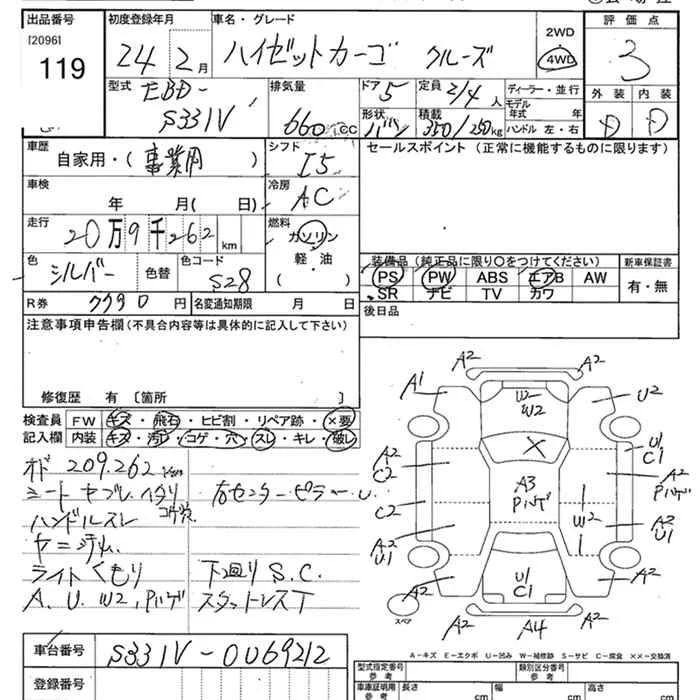 出品番号 初度登録年月 車名・グレード 2WD 評価点
[2096]
119 24 2月 ハイゼットカーゴ クルーズ 4WD 3
型式 排気量 ドア 5 定員 2/4人 ディーラー・並行 外装 内装
EBD-
S331V 660cc 形状 バン 積載 350/250kg モデル年式 年 D D
ハンドル 左・右
車歴 シフト セールスポイント(正常に機能するものに限ります)
自家用・(事業用) I5
車検 冷房
年 月( 日) AC
走行 燃料
20万9千262km ガソリン
色 色コード 軽・油 装備品(純正品に限り○をつけてください) 新車保証書
シルバー 色替 S28 ( ) PS PW ABS エアB AW 有・無
SR ナビ TV カワ
R券 7790円 名変通知期限 月 日
後日品
注意事項申告欄(不具合内容等は具体的に記入して下さい)
修復歴 有 〔箇所 〕
検査員 FW キズ・飛石・ヒビ割・リペア跡・×要
記入欄 内装 キズ・汚れ・コゲ・穴・スレ・キレ・破レ
オド 209.262km
シートヤブレ、ヘタリ 右センターピラーU
ハンドルスレ コゲ穴
ヤニ汚れ
ライトくもり 下廻りS.C.
A、U、W2、Pハゲ スタットレスT
A2 A2
A1 W2 W2 U2
A2 C2 U/C1
A3 Pハゲ A2 Pハゲ
C2 W2
A2 U1 A2 U1
A2 U/C1 A2
スペア A2 A4 A2
A-キズ E-エクボ U-凹み W-補修跡 S-サビ C-腐食 ××-交換済
車台番号 S331V-0069212
登録番号
型式指定番号 参考 類別区分番号 参考
車庫証明用 参考 長さ cm 幅 cm 高さ cm